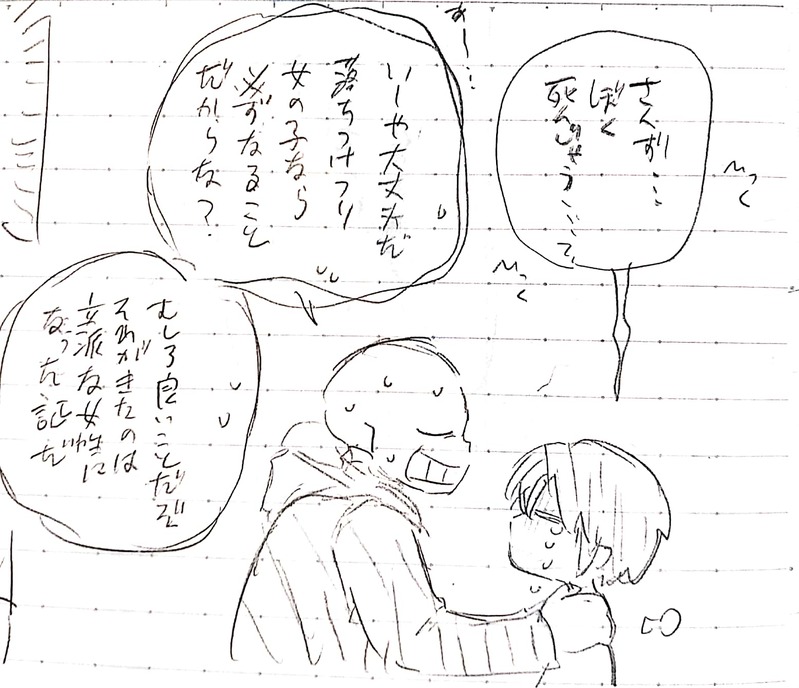 さんずぃ…
ぼく
死んじゃう…で
ひっく
ひっく
あー…
いーや大丈夫だ
落ちつけフリ
女の子なら
必ずなること
だからな?
むしろ良いことだぞ
それがきたのは
立派な女性に
なった証だ